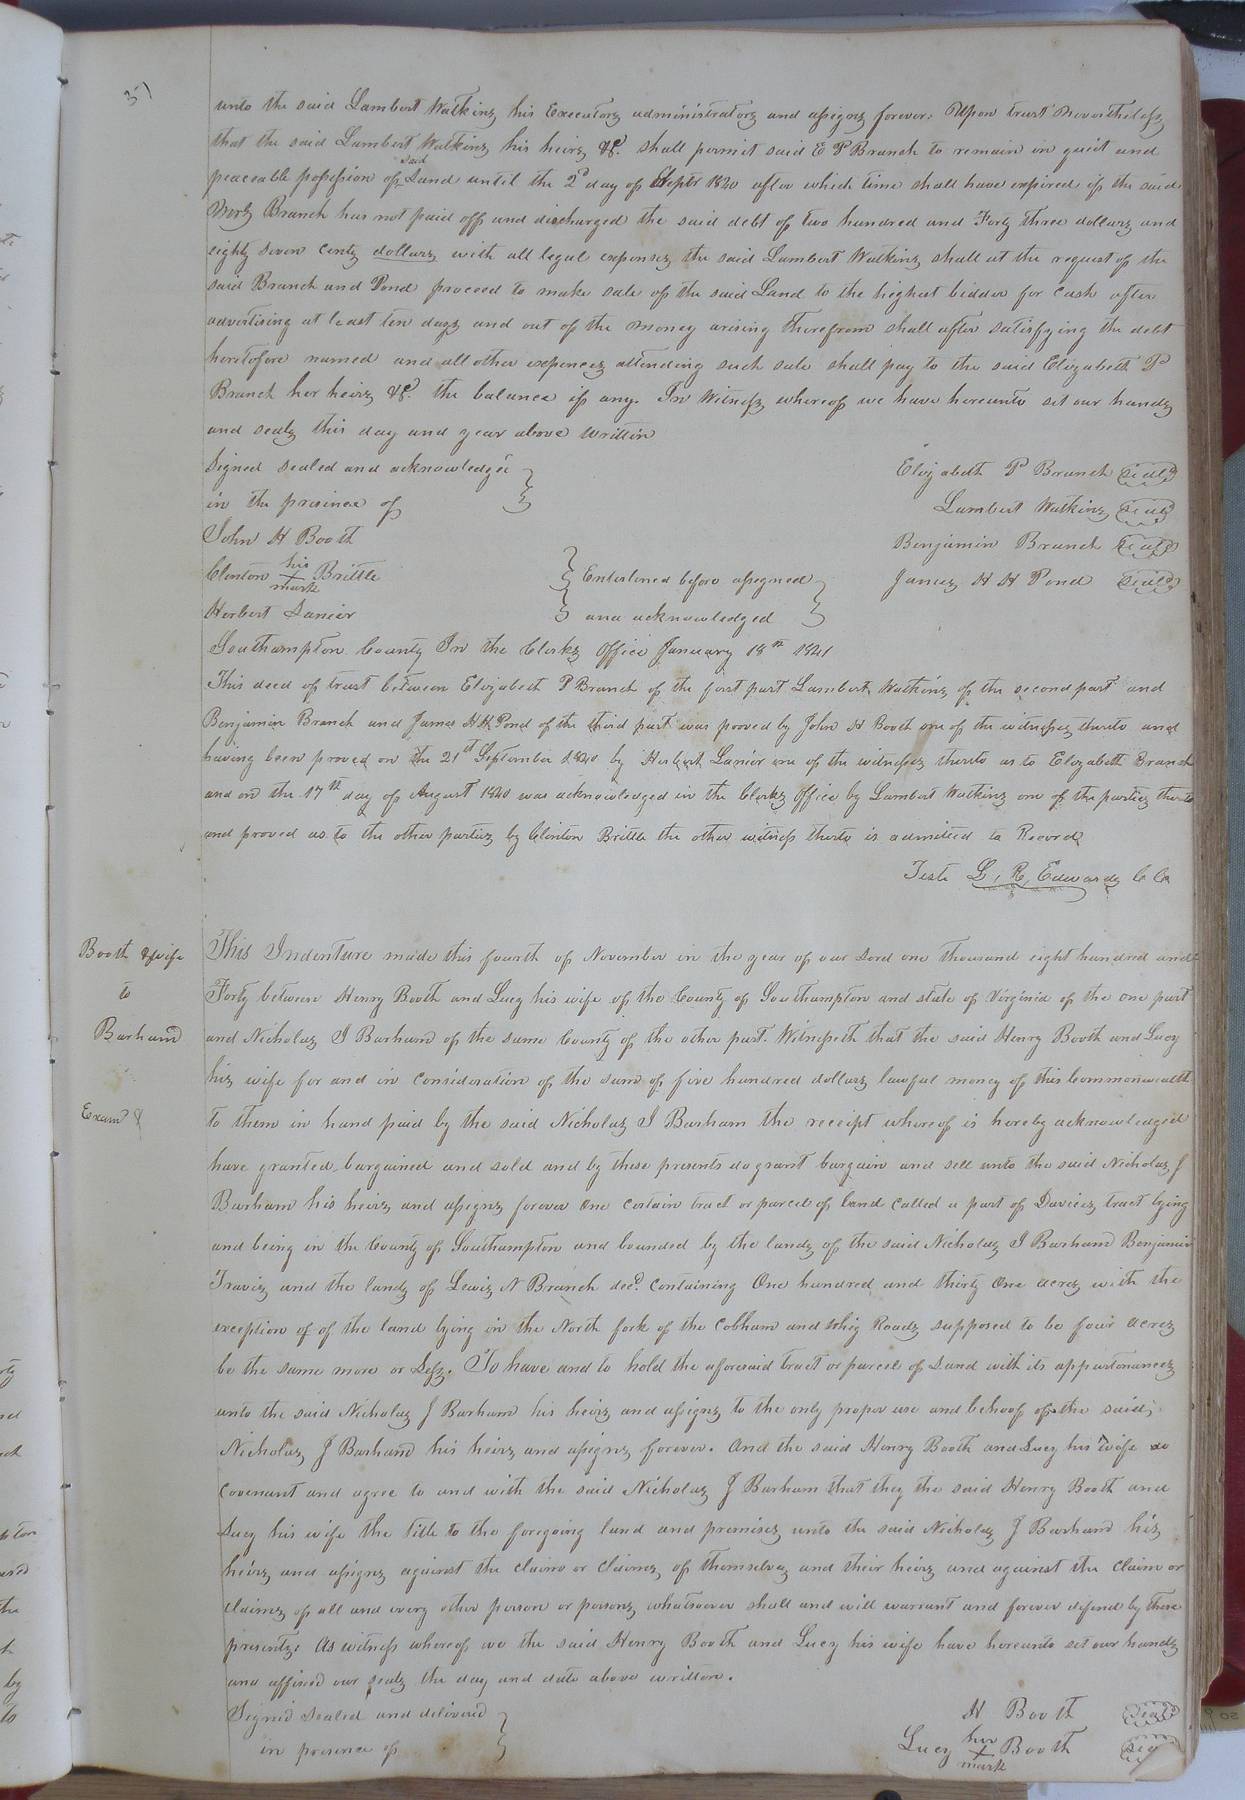 51
unto the said Lambert Watkins his Executors administrators and assigns forever. Upon trust Nevertheless
that the said Lambert Watkins his heirs &c. shall permit said E P Branch to remain in quiet and
peaceable possession of said Land until the 2d day of Septr 1840 after which time shall have expired if the said
Branch has not paid off and discharged the said debt of two hundred and Forty three dollars and
eighty seven cents dollars with all legal expenses the said Lambert Watkins shall at the request of the
said Branch and Pond proceed to make sale of the said Land to the highest bidder for Cash after
advertising at least ten days and out of the money arising therefrom shall after satisfying the debt
heretofore named and all other expences attending such sale shall pay to the said Elizabeth P
Branch her heirs &c. the balance if any. In Witness whereof we have hereunto set our hands
and seals this day and year above written
Signed sealed and acknowledged Elizabeth P Branch seal
in the presence of Lambert Watkins seal
John H Booth Benjamin Branch seal
Clinton his x mark Brittle Enterlined before assigned James H H Pond seal
Herbert Lanier and acknowledged
Southampton County In the Clerks Office January 18th 1841
This deed of trust between Elizabeth P Branch of the first part Lambert Watkins of the second part and
Benjamin Branch and James H H Pond of the third part was proved by John H Booth one of the witnesses thereto and
having been proved on the 21st September 1840 by Herbert Lanier one of the witnesses thereto as to Elizabeth Branch
and on the 17th day of August 1840 was acknowledged in the Clerks Office by Lambert Watkins one of the parties thereto
and proved as to the other parties by Clinton Brittle the other witness thereto is admitted to Record
Teste L. R. Edwards C C
Booth & wife
to
Barham
Examd
This Indenture made this fourth of November in the year of our Lord one thousand eight hundred and
Forty between Henry Booth and Lucy his wife of the County of Southampton and state of Virginia of the one part
and Nicholas J Barham of the same County of the other part. Witnesseth that the said Henry Booth and Lucy
his wife for and in consideration of the sum of five hundred dollars lawful money of this Commonwealth
to them in hand paid by the said Nicholas J Barham the receipt whereof is hereby acknowledged
have granted bargained and sold and by these presents do grant bargain and sell unto the said Nicholas J
Barham his heirs and assigns forever one certain tract or parcel of land called a part of Davies tract lying
and being in the County of Southampton and bounded by the lands of the said Nicholas J Barham Benjamin
Travis and the lands of Lewis N Branch decd. containing One hundred and thirty One acres with the
exception of of the land lying in the North fork of the Cobham and Roads supposed to be four acres
be the same more or Less. To have and to hold the aforesaid tract or parcel of Land with its appurtenances
unto the said Nicholas J Barham his heirs and assigns to the only proper use and behoof of the said
Nicholas J Barham his heirs and assigns forever. And the said Henry Booth and Lucy his wife do
covenant and agree to and with the said Nicholas J Barham that they the said Henry Booth and
Lucy his wife the title to the foregoing land and premises unto the said Nicholas J Barham his
heirs and assigns against the claim or claims of themselves and their heirs and against the claim or
claims of all and every other person or persons whatsoever shall and will warrant and forever defend by these
presents. As witness whereof we the said Henry Booth and Lucy his wife have hereunto set our hands
and affixed our seals the day and date above written.
Signed sealed and delivered H Booth seal
in presence of Lucy her x mark Booth seal